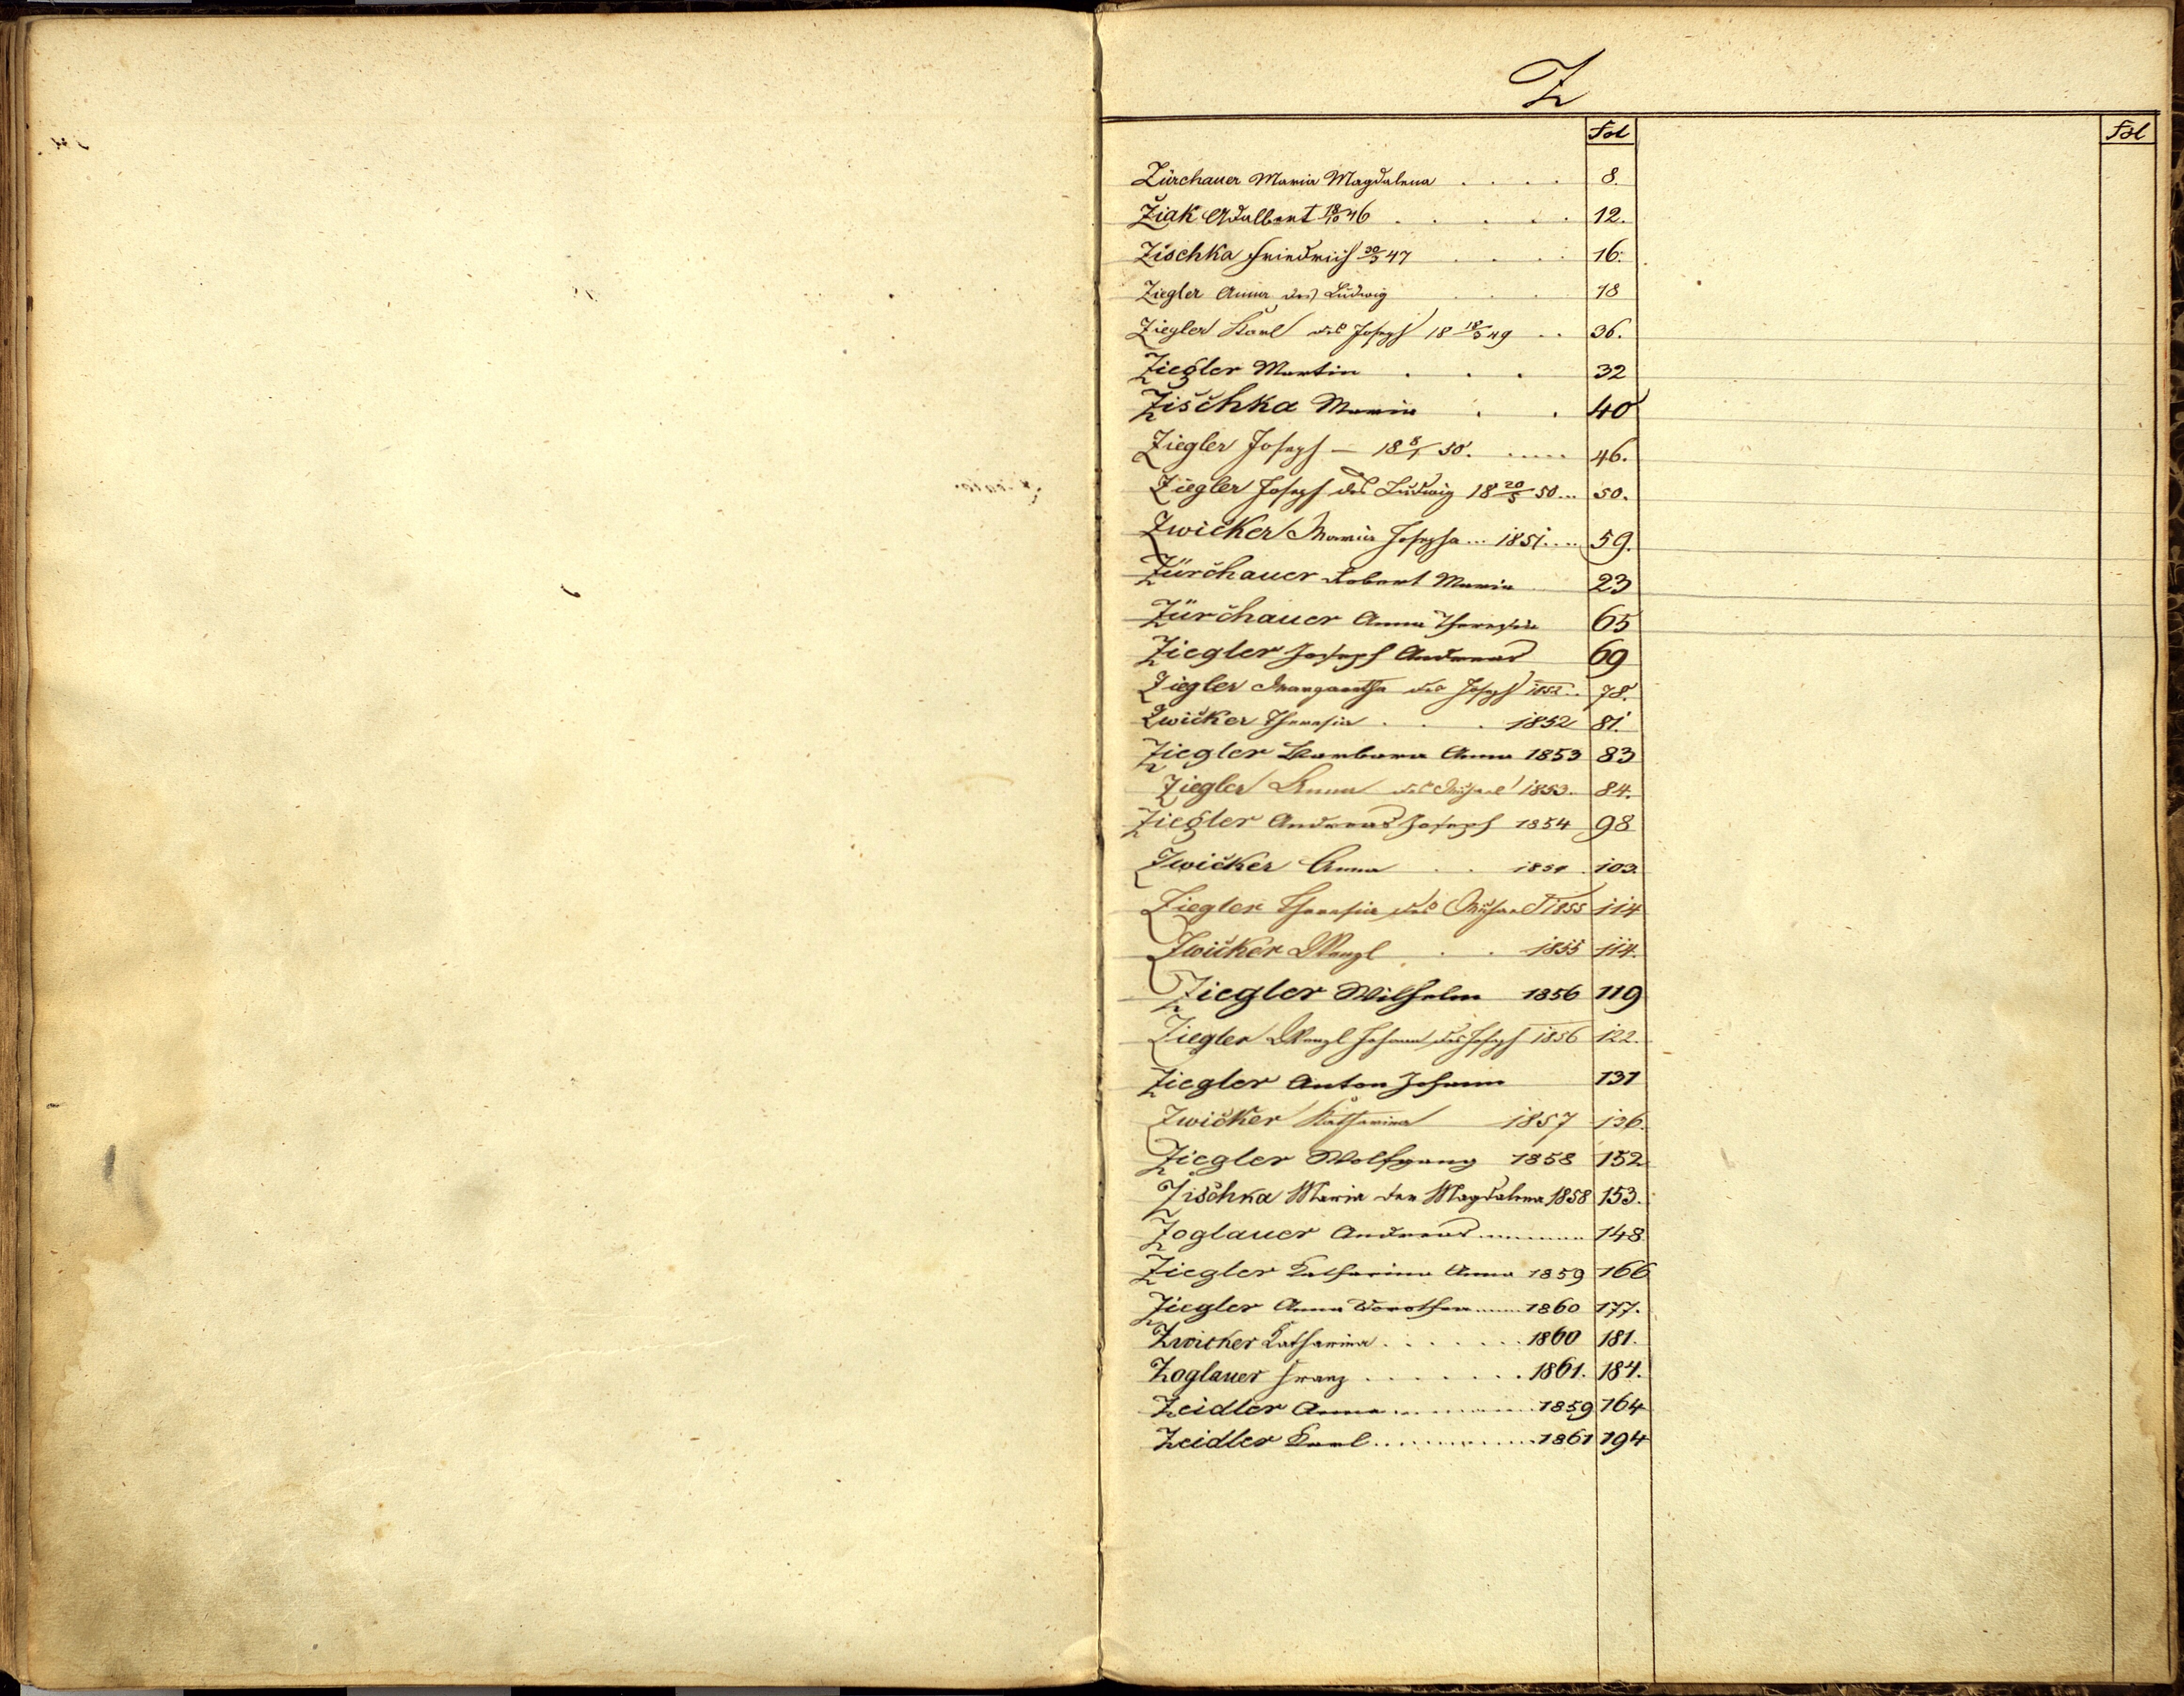 Z
Fol Fol
Zürchauer Maria Magdalena . . . . 8.
Žiak Adalbert 18/10 46 . . . . . 12.
Zischka Friedrich 30/3 47 . . . . 16.
Ziegler Anna des Ludwig . . . 18
Ziegler Karl des Joseph 18 18/3 49 . . 36.
Ziegler Martin . . . 32
Zischka Maria . . 40
Ziegler Joseph — 18 8/1 50. ..... 46.
Ziegler Joseph des Ludwig 18 20/5 50... 50.
Zwicker Maria Josepha... 1851.... 59.
Zürchauer Robert Maria 23
Zürchauer Anna Theresia 65
Ziegler Joseph Andreas 69
Ziegler Margaretha des Joseph 1852.. 78.
Zwicker Theresia . . . 1852 81.
Ziegler Barbara Anna 1853 83
Ziegler Anna des Michael 1853. 84.
Ziegler Andreas Joseph 1854 98
Zwicker Anna . . 103.
Ziegler Theresia des Michael 1855 114
Zwicker Wenzl . . 1855 114.
Ziegler Wilhelm 1856 119
Ziegler Wenzl Johann des Joseph 1856 122.
Ziegler Anton Johann 131
Zwicker Katharina 1857 136.
Ziegler Wolfgang 1858 152
Zischka Maria der Magdalena 1858 153.
Zoglauer Andreas............ 148
Ziegler Katharina Anna 1859 166
Ziegler Anna Dorothea......1860 177.
Zwicker Katharina . . . . . . 1860 181.
Zoglauer Franz . . . . . . . 1861. 184.
Zeidler Anna..............1859 164
Zeidler Karl..............1861 194